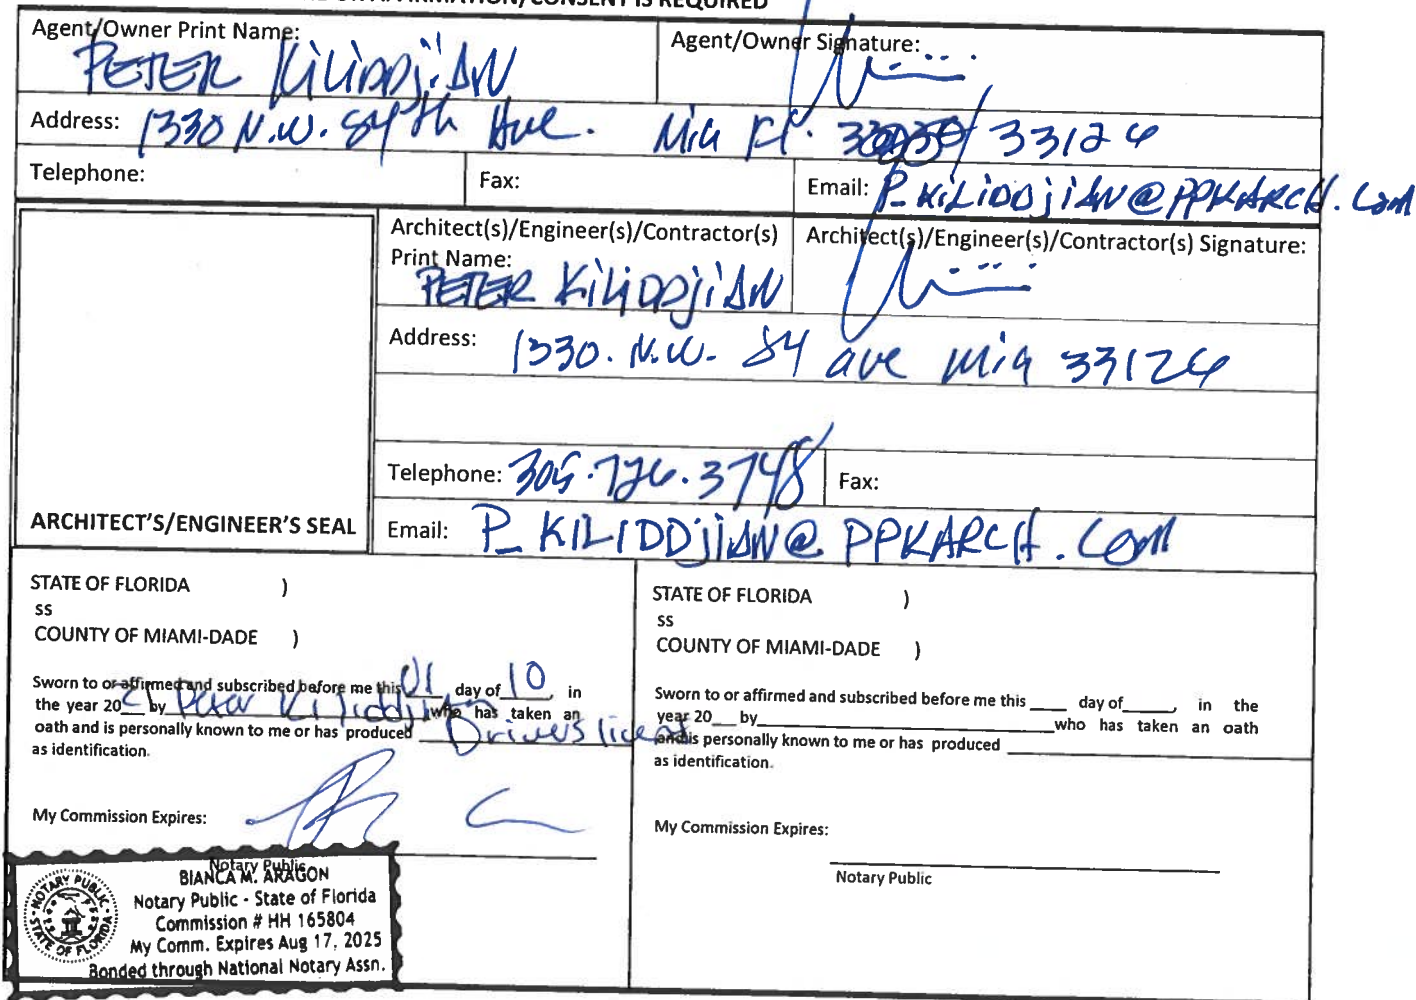 AFFIRMATION/CONSENT IS REQUIRED
Agent/Owner Print Name: PETER KiLiDDjiAN
Agent/Owner Signature:
Address: 1330 N.W. 84th Ave. Mia Fl. 33126
Telephone:
Fax:
Email: P_KiLiDDjiAN@PPKARCH.Com
Architect(s)/Engineer(s)/Contractor(s)
Print Name: PETER KiLiDDjiAN
Architect(s)/Engineer(s)/Contractor(s) Signature:
Address: 1330. N.W. 84 ave Mia 33126
Telephone: 305.726.3748
Fax:
ARCHITECT'S/ENGINEER'S SEAL
Email: P_KILIDDjiAN@PPKARCH.Com
STATE OF FLORIDA )
ss
COUNTY OF MIAMI-DADE )
Sworn to or affirmed and subscribed before me this 01 day of 10, in
the year 2021 by Peter Kiliddjian who has taken an
oath and is personally known to me or has produced Drivers license
as identification.
My Commission Expires:
Notary Public
BIANCA M. ARAGON
Notary Public - State of Florida
Commission # HH 165804
My Comm. Expires Aug 17, 2025
Bonded through National Notary Assn.
NOTARY PUBLIC
STATE OF FLORIDA
STATE OF FLORIDA )
ss
COUNTY OF MIAMI-DADE )
Sworn to or affirmed and subscribed before me this ____ day of_____, in the
year 20__ by____________________who has taken an oath
and is personally known to me or has produced ____________________
as identification.
My Commission Expires:
Notary Public